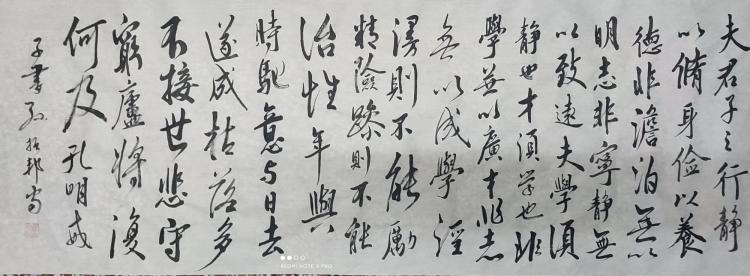 夫君子之行静
以脩身俭以養
德非澹泊無以
明志非寧静無
以致遠夫學須
静也才須学也非
學無以廣才非志
無以成學淫
漫則不能勵
精險躁則不能
治性年與
時馳意与日去
遂成枯落多
不接世悲守
窮廬將復
何及孔明戒
子書
REDMI NOTE PRO